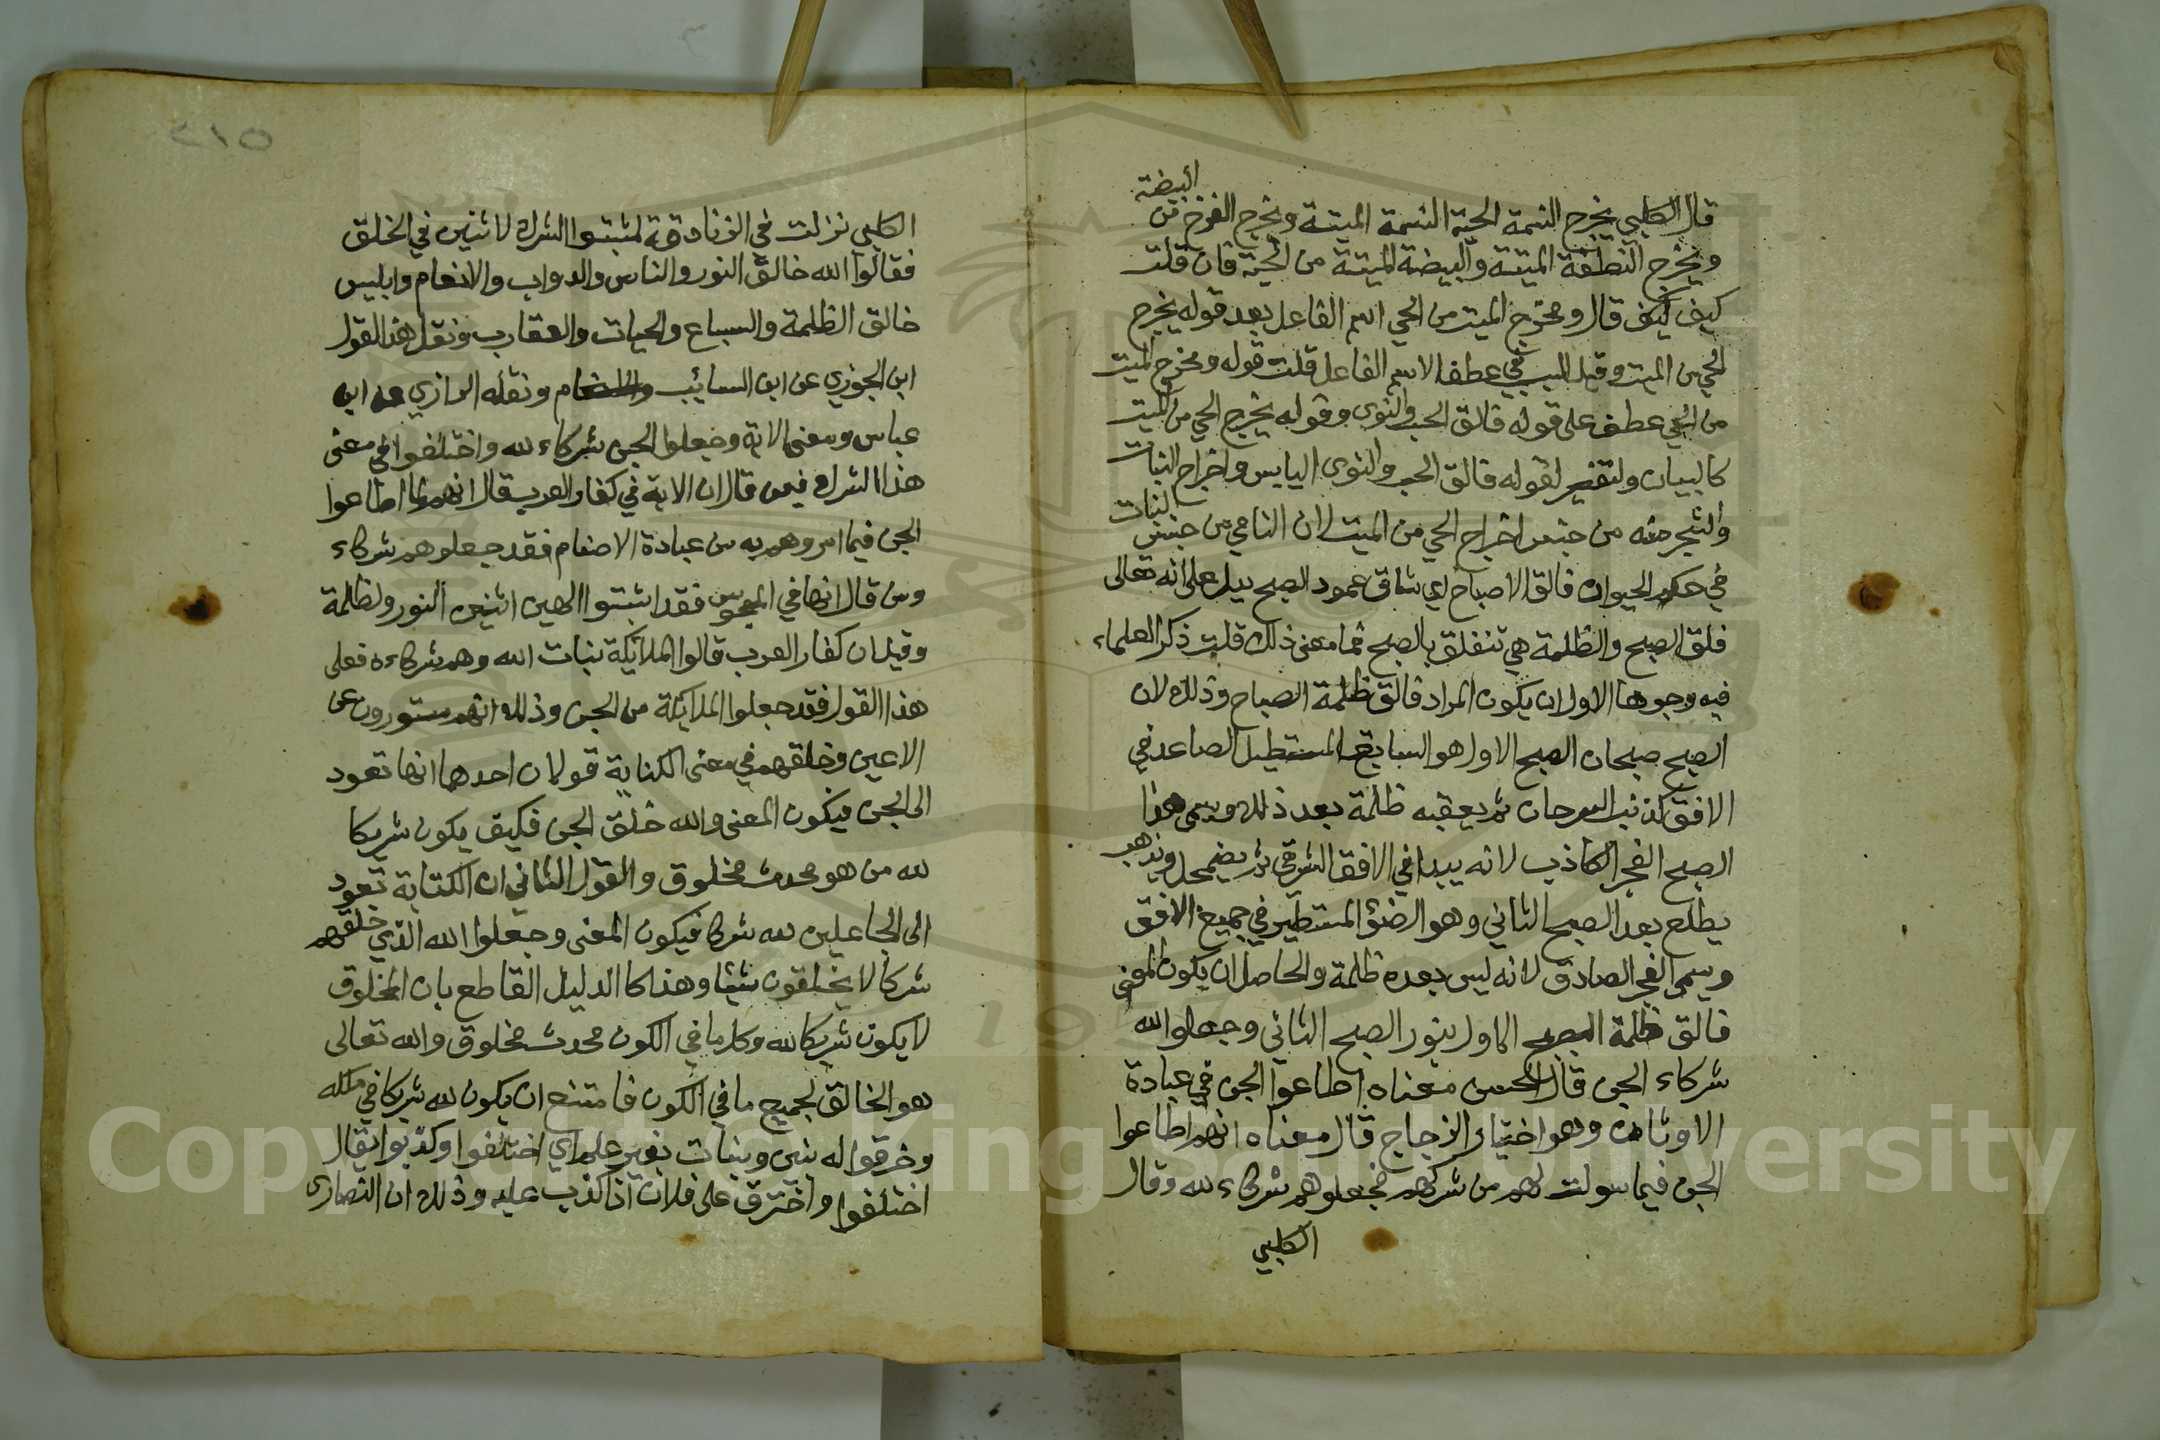 البيضة
قال الكلبي يخرج النسمة الحية النسمة الميتة ويخرج الفرخ من
ويخرج النطفة الميتة والبيضة الميتة من الحية فان قلت
كيف كيف قال ومخرج الميت من الحي اسم الفاعل بعد قوله يخرج
الحي من الميت وقيل السبب في عطف الاسم الفاعل قلت قوله ومخرج الميت
من الحي عطف على قوله فالق الحب والنوى وقوله يخرج الحي من الميت
كالبيان ولتفسير لقوله فالق الحب والنوى اليابس واخراج النبات
والشجر منه من جنس اخراج الحي من الميت لان النامي من جنس النبات
في حكم الحيوان فالق الاصباح اي شاق عمود الصبح يدل على انه تعالى
فلق الصبح والظلمة هي تنفلق بالصبح فما معنى ذلك قلت ذكر العلماء
فيه وجوها الاول ان يكون المراد فالق ظلمة الصباح وذلك لان
الصبح صبحان الصبح الاول هو السابق المستطيل الصاعد في
الافق كذنب السرحان ثم يعقبه ظلمة بعد ذلك ويسمى هذا
الصبح الفجر الكاذب لانه يبدا في الافق الشرقي ثم يضمحل ويذهب
يطلع بعد الصبح الثاني وهو الضوء المستطير في جميع الافق
ويسمى الفجر الصادق لانه ليس بعده ظلمة والحاصل ان يكون المعنى
فالق ظلمة الصبح الاول بنور الصبح الثاني وجعلوا الله
شركاء الجن قال الحسن معناه اطاعوا الجن في عبادة
الاوثان وهو اختيار الزجاج قال معناه انهم اطاعوا
الجن فيما سولت لهم من شركهم فجعلوهم شركاء لله وقال
الكلبي
٢١٥
الكلبي نزلت في الزنادقة لثبتوا الشرك لاثنين في الخلق
فقالوا الله خالق النور والناس والدواب والانعام وابليس
خالق الظلمة والسباع والحيات والعقارب ونقل هذا القول
ابن الجوزي عن ابن السايب ونقله الرازي عن ابن
عباس ومعنى الاية وجعلوا الجن شركاء لله واختلفوا في معنى
هذا الشرك فمن قال ان الاية في كفار العرب قال انهم لما اطاعوا
الجن فيما امروهم به من عبادة الاصنام فقد جعلوهم شركاء
ومن قال انها في المجوس فقد اثبتوا الهين اثنين النور ولظلمة
وقيل ان كفار العرب قالوا الملائكة بنات الله وهم شركاءه فعلى
هذا القول فقد جعلوا الملائكة من الجن وذلك انهم مستورون عن
الاعين وخلقهم في معنى الكناية قولان احدهما انها تعود
الى الجن فيكون المعنى والله خلق الجن فكيف يكون شريكا
لله من هو محدث مخلوق والقول الثاني ان الكناية تعود
الى الجاعلين لله شركا فيكون المعنى وجعلوا الله الذي خلقهم
شركا لا يخلقون شيئا وهذا كالدليل القاطع بان المخلوق
لا يكون شريكا لله وكل ما في الكون محدث مخلوق والله تعالى
هو الخالق لجميع ما في الكون فامتنع ان يكون لله شريكا في ملكه
وخرقوا له بنين وبنات بغير علم اي اختلفوا وكذبوا يقال
اختلفوا واخترق على فلان اذا كذب عليه وذلك ان النصارى
Copyright © King Saud University